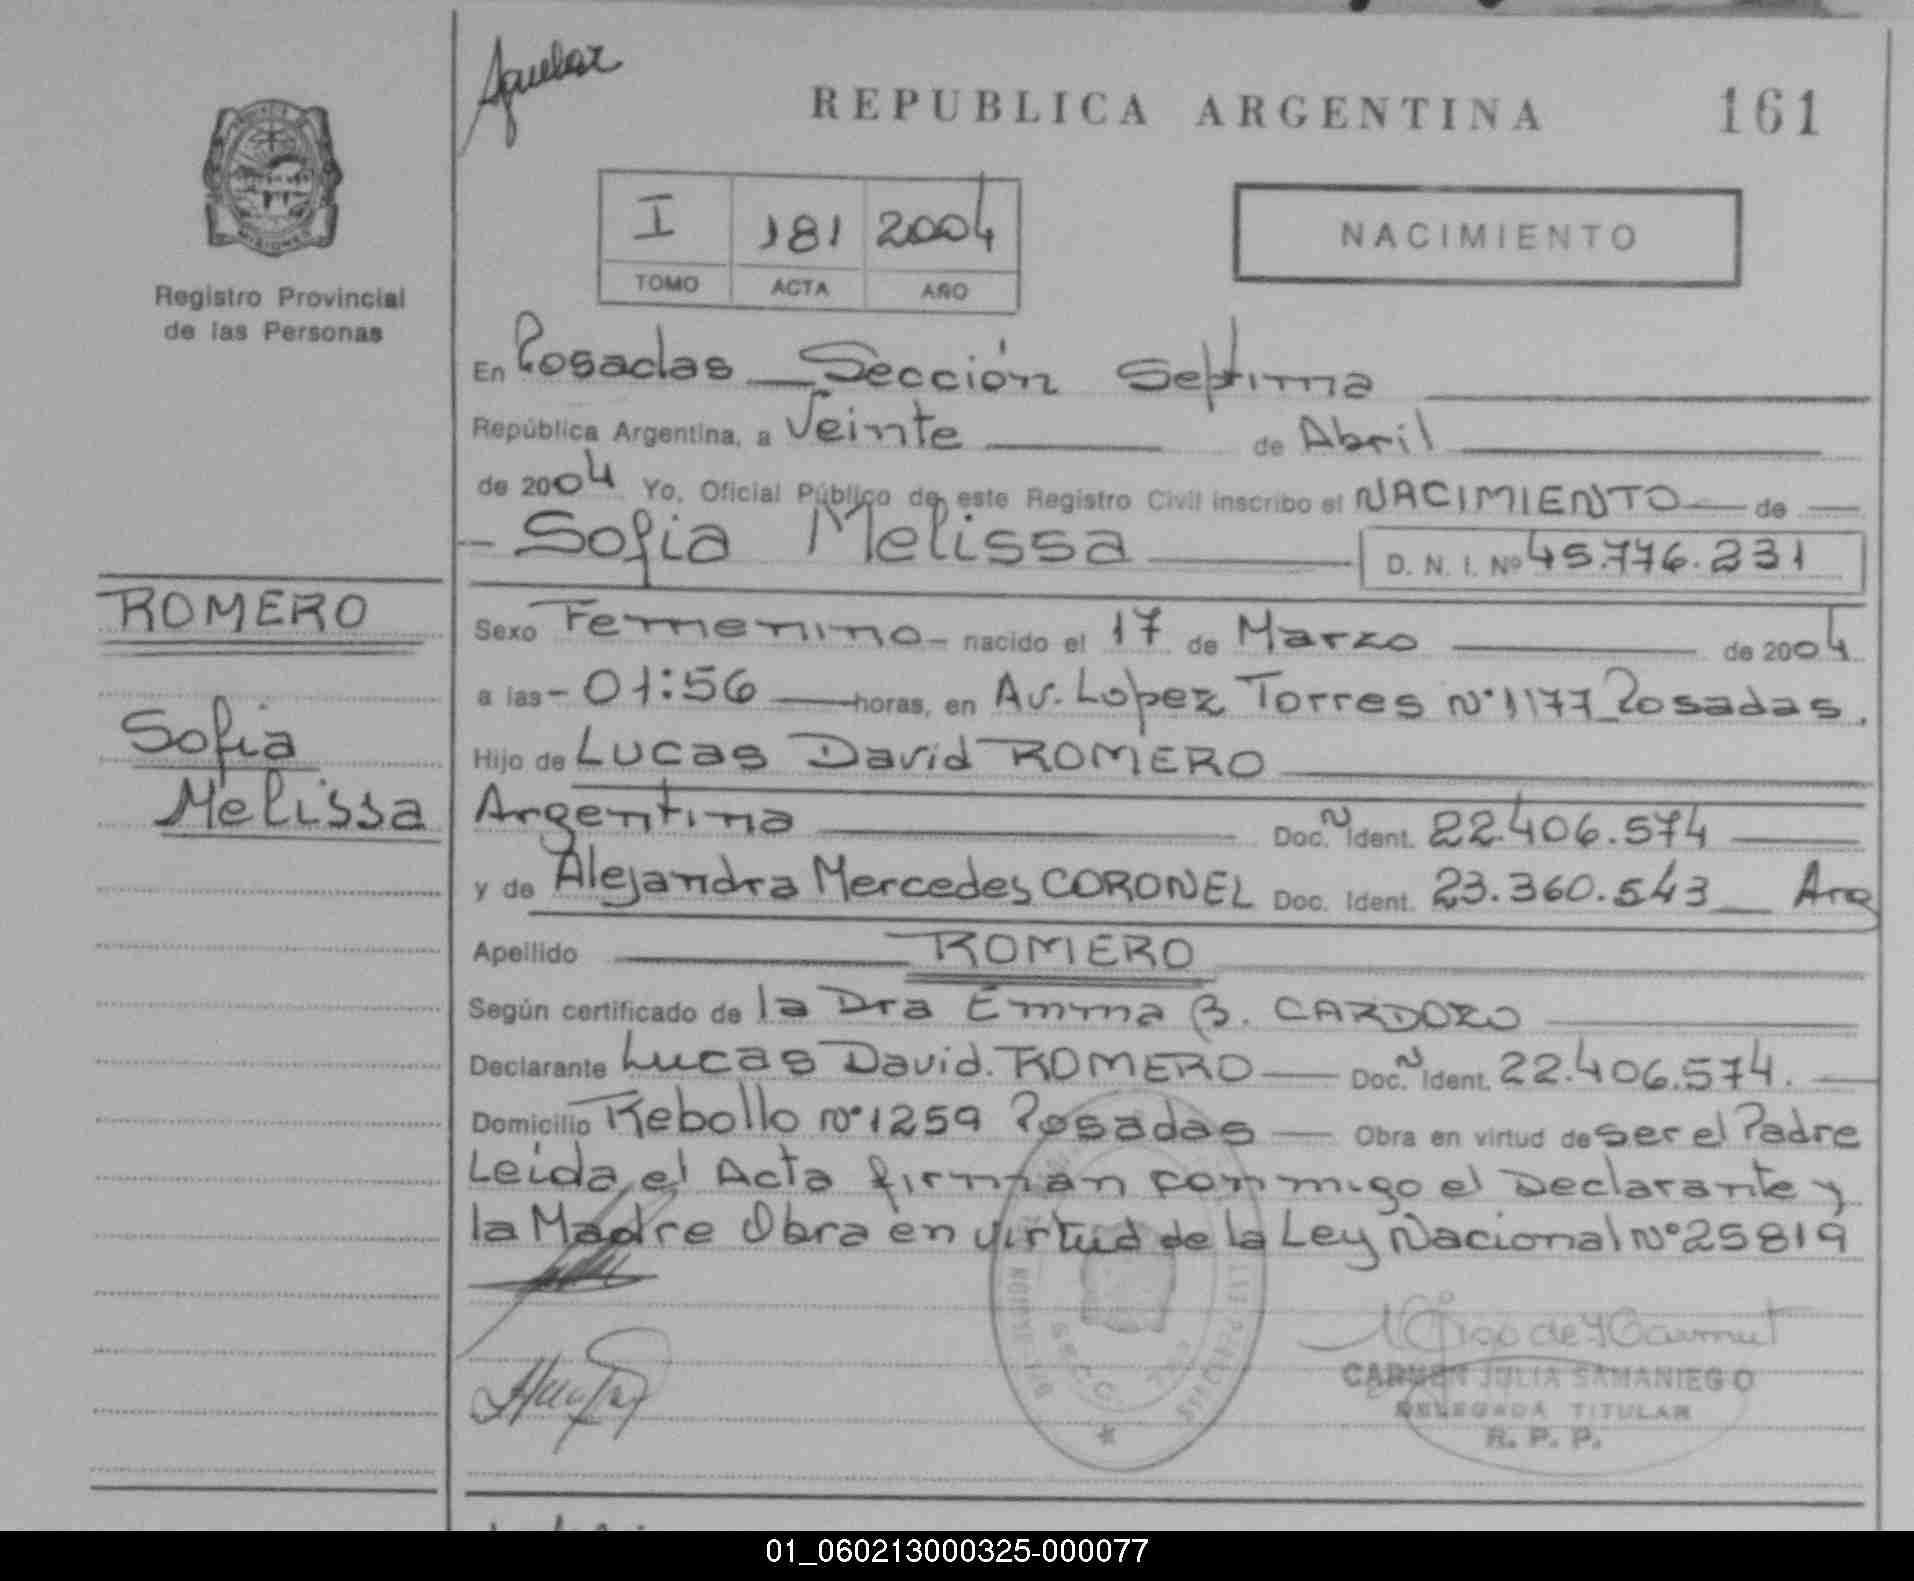 REPUBLICA ARGENTINA 161
MISIONES
Registro Provincial
de las Personas
I 181 2004
TOMO ACTA AÑO
NACIMIENTO
En Posadas Sección Septima
República Argentina, a Veinte de Abril
de 2004 Yo, Oficial Público de este Registro Civil inscribo el NACIMIENTO de
Sofia Melissa D. N. I. Nº 45.776.231
ROMERO
Sofia
Melissa
Sexo Femenino nacido el 17 de Marzo de 2004
a las 01:56 horas, en Av. Lopez Torres Nº 1177 Posadas.
Hijo de Lucas David ROMERO
Argentina Doc. N Ident. 22.406.574
y de Alejandra Mercedes CORONEL Doc. Ident. 23.360.543 Arg
Apellido ROMERO
Según certificado de la Dra Emma B. CARDOZO
Declarante Lucas David. ROMERO Doc. N Ident. 22.406.574.
Domicilio Rebollo Nº 1259 Posadas Obra en virtud de ser el Padre
Leida el Acta firman conmigo el Declarante y
la Madre Obra en virtud de la Ley Nacional Nº 25819
CARMEN JULIA SAMANIEGO
DELEGADA TITULAR
R. P. P.
01_060213000325-000077